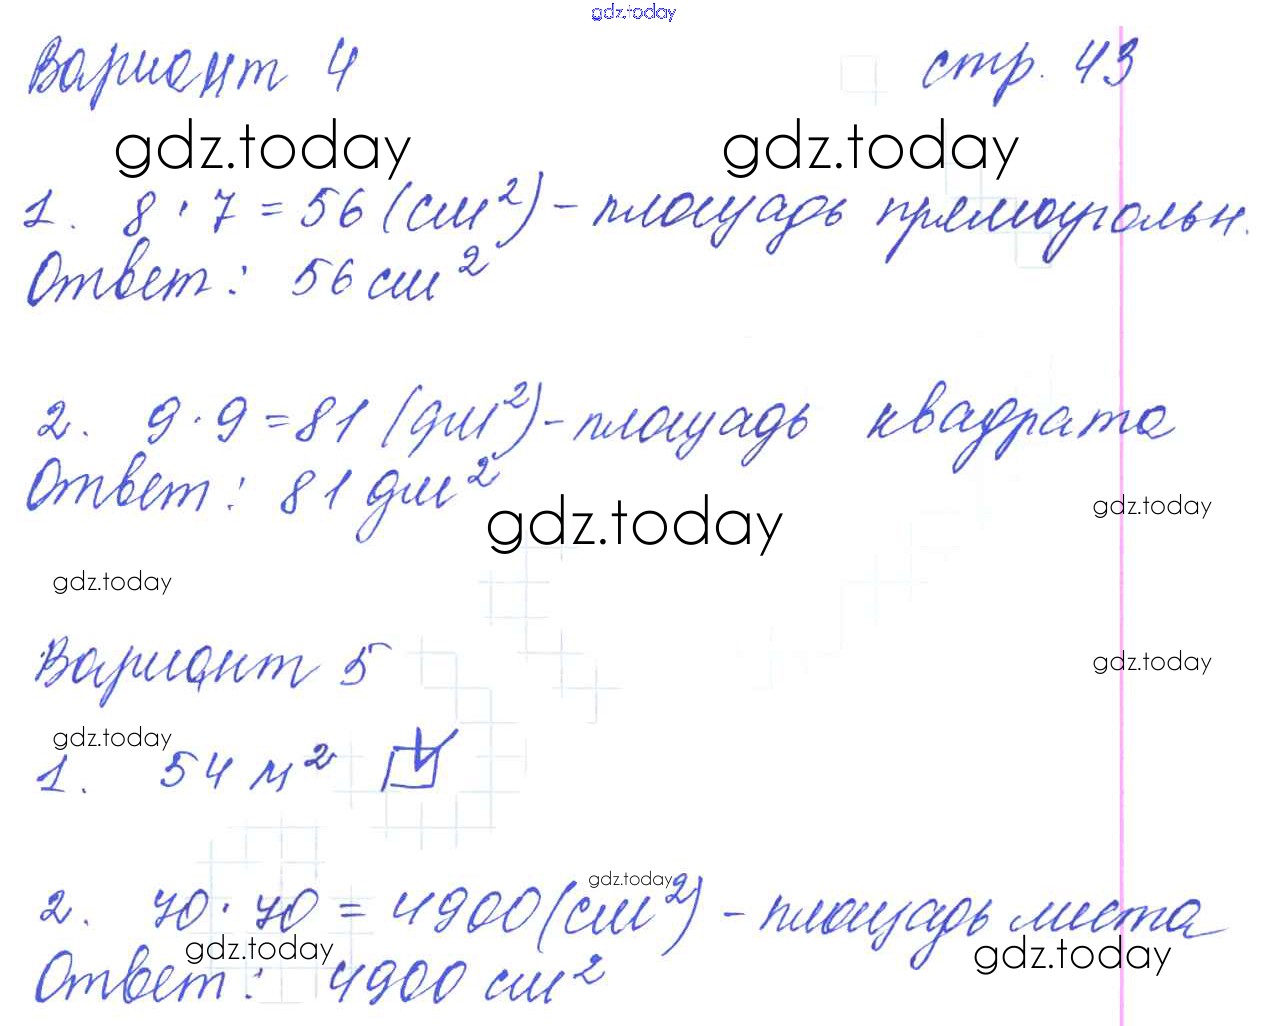 gdz.today
Вариант 4 стр. 43
gdz.today gdz.today
1. 8 · 7 = 56 (см²) – площадь прямоугольн.
Ответ: 56 см²
2. 9 · 9 = 81 (дм²) – площадь квадрата
Ответ: 81 дм²
gdz.today gdz.today
gdz.today
Вариант 5
gdz.today
gdz.today
1. 54 м² ☑
gdz.today
2. 70 · 70 = 4900 (см²) – площадь листа
gdz.today gdz.today
Ответ: 4900 см²